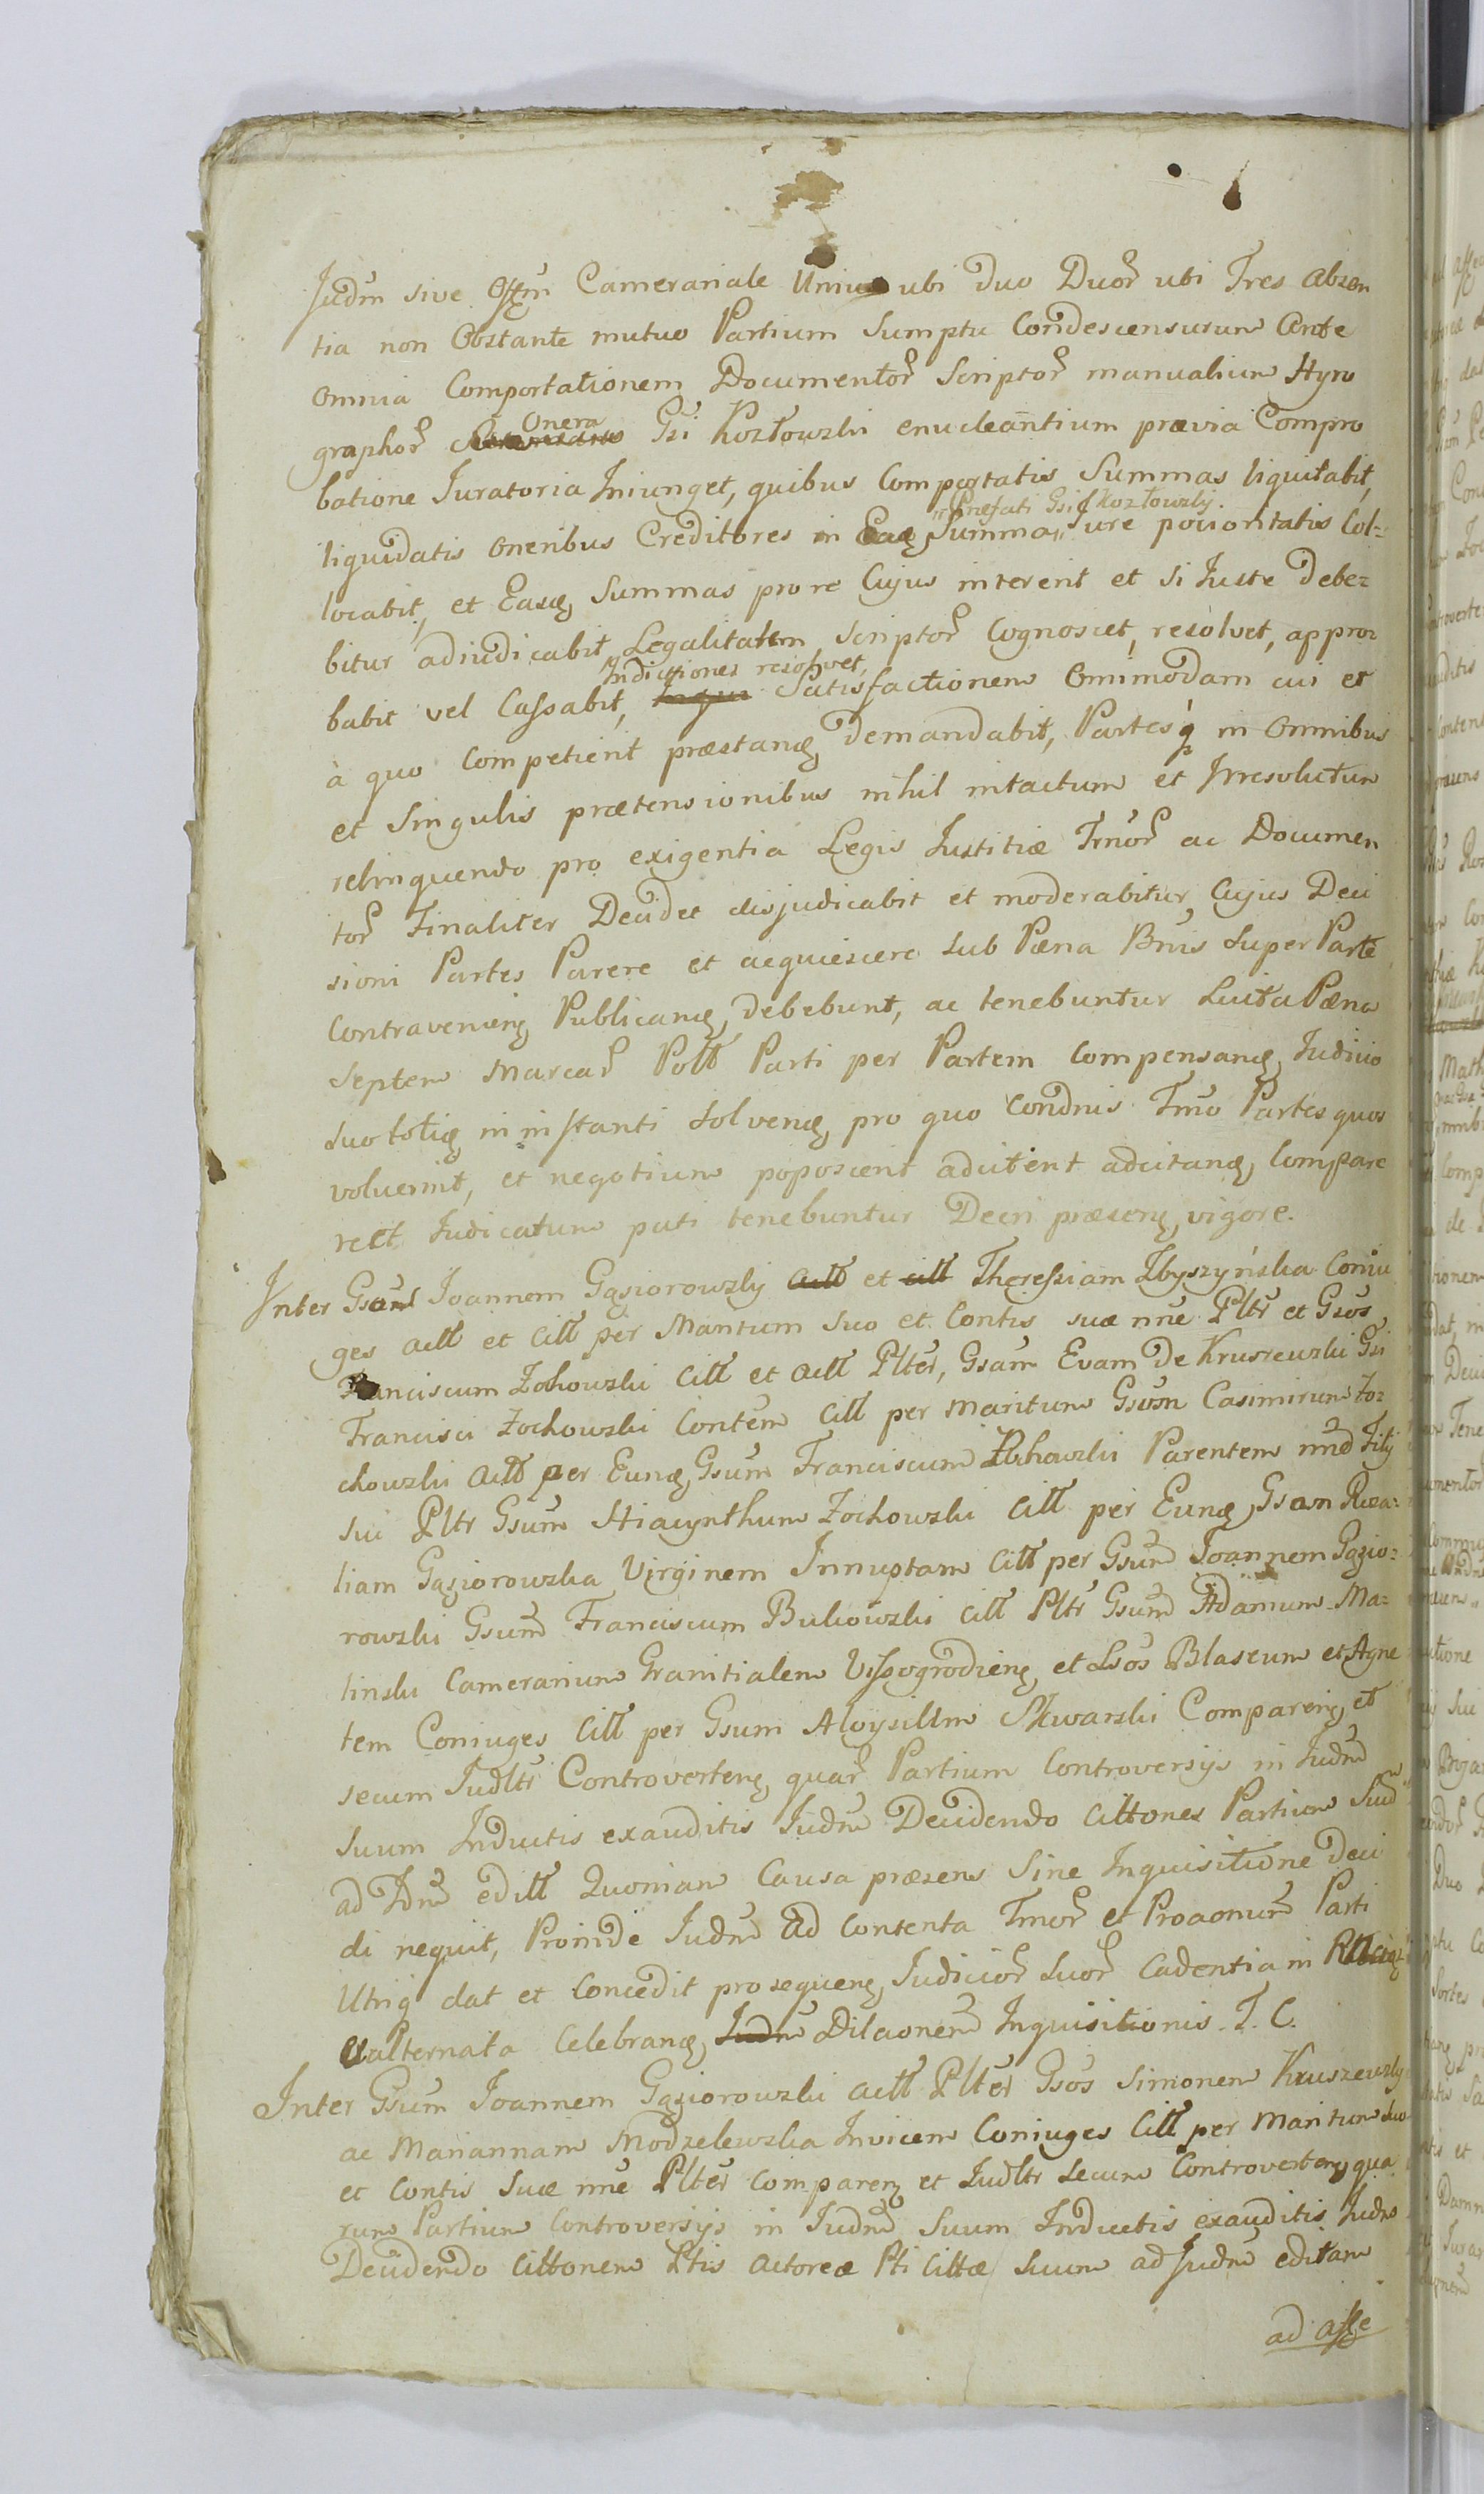 Judm sive Offm Camerariale Unius ubi duo Duor ubi Tres absen
tia non Obstante mutuo Partium Sumptu Condescensurum Ante
omnia Comportationem Documentor Scriptor manualium Hyro
graphor Onera Gsi Kozłowski enucleantium prævia Compro
batione Juratoria Iniunget, quibus Comportatis Summas liquitabit,
"Præfati Gsi Kozłowsky.
liquidatis oneribus Creditores in Eaq Summa" Jure prioritatis Col=
locabit, et Easq Summas pro re Cujus intererit et si Juste Debe=
bitur adiudicabit Legalitatem Scriptor Cognoscet, resolvet, appro=
Indictiones resolvet,
babit vel Cassabit, Satisfactionem Omimodam cui et
à quo Competierit præstanq demandabit, Partesq in Omnibus
et Singulis prætensionibus nihil intactum et Irresolutum
relinquendo pro exigentia Legis Justitiæ Tmor ac Documen
tor Finaliter Decidet disjudicabit et moderabitur Cujus Deci
sioni Partes Parere et acquiescere sub Pæna Bnis Super Parte
Contravenienq Publicanq, debebunt, ac tenebuntur Luita Pæna
Septem Marcar Poll Parti per Partem Compensanq Judicio
suo totiq in instanti Solvenq, pro quo Condnis Tmo Partes quos
voluerint, et negotium poposcerit adcitent adcitanq, Compare
re et Judicatum pati tenebuntur Decri præsenq, vigore.
Inter Gsam Joannem Gąsiorowsky actt et citt Theressiam Zbyszyńska Coniu
ges actt et Citt per Maritum Suo et Contis suæ nne Plter et Gsos
Franciscum Zochowski Citt et actt Plter, Gsam Evam de Kruszewski Gsi
Francisci Zochowski Contem Citt per maritum Gsum Casimirum Zo=
chowski actt per Eunq Gsum Franciscum Zochowski Parentem nne Filij
sui Pltr Gsum Hiacynthum Zochowski Citt per Eunq, Gsam Rosa=
liam Gąsiorowska Virginem Innuptam Citt per Gsum Joannem Gąsio=
rowski Gsum Franciscum Bulkowski Citt Pltr Gsum Adamum Ma=
linski Camerarium Granitialem Vissogrodienq, et Lsos Blaseum et Agne
tem Coniuges Citt per Gsum Aloysium Skwarski Comparenq, et
secum Judltr Controvertenq, quar Partium Controversijs in Judm
Suum Inductis exauditis Judm Decidendo Cittones Partium Suum
ad Idm editt Quoniam Causa præsens Sine Inquisitione Deci
di nequit, Proinde Judm Ad Contenta Tmor et Proaonum Parti
Utriq dat et Concedit prosequenq, Judicior Suor Cadentia in
alternata Celebranq, Judm Dilaonem Inquisitionis. T. C.
Inter Gsum Joannem Gąsiorowski actt Plter Gsos Simonem Kruszewsky
ac Mariannam Modzelewska Invicem Coniuges Citt per Maritum Suo
et Contis Suæ nne Plter Comparenq et Judltr Secum Controvertenq qua
rum Partium Controversijs in Judm Suum Inductis exauditis Judm
Decidendo Cittonem Ptis Actoreæ Pti Cittæ Suum ad Judm editam
ad asse